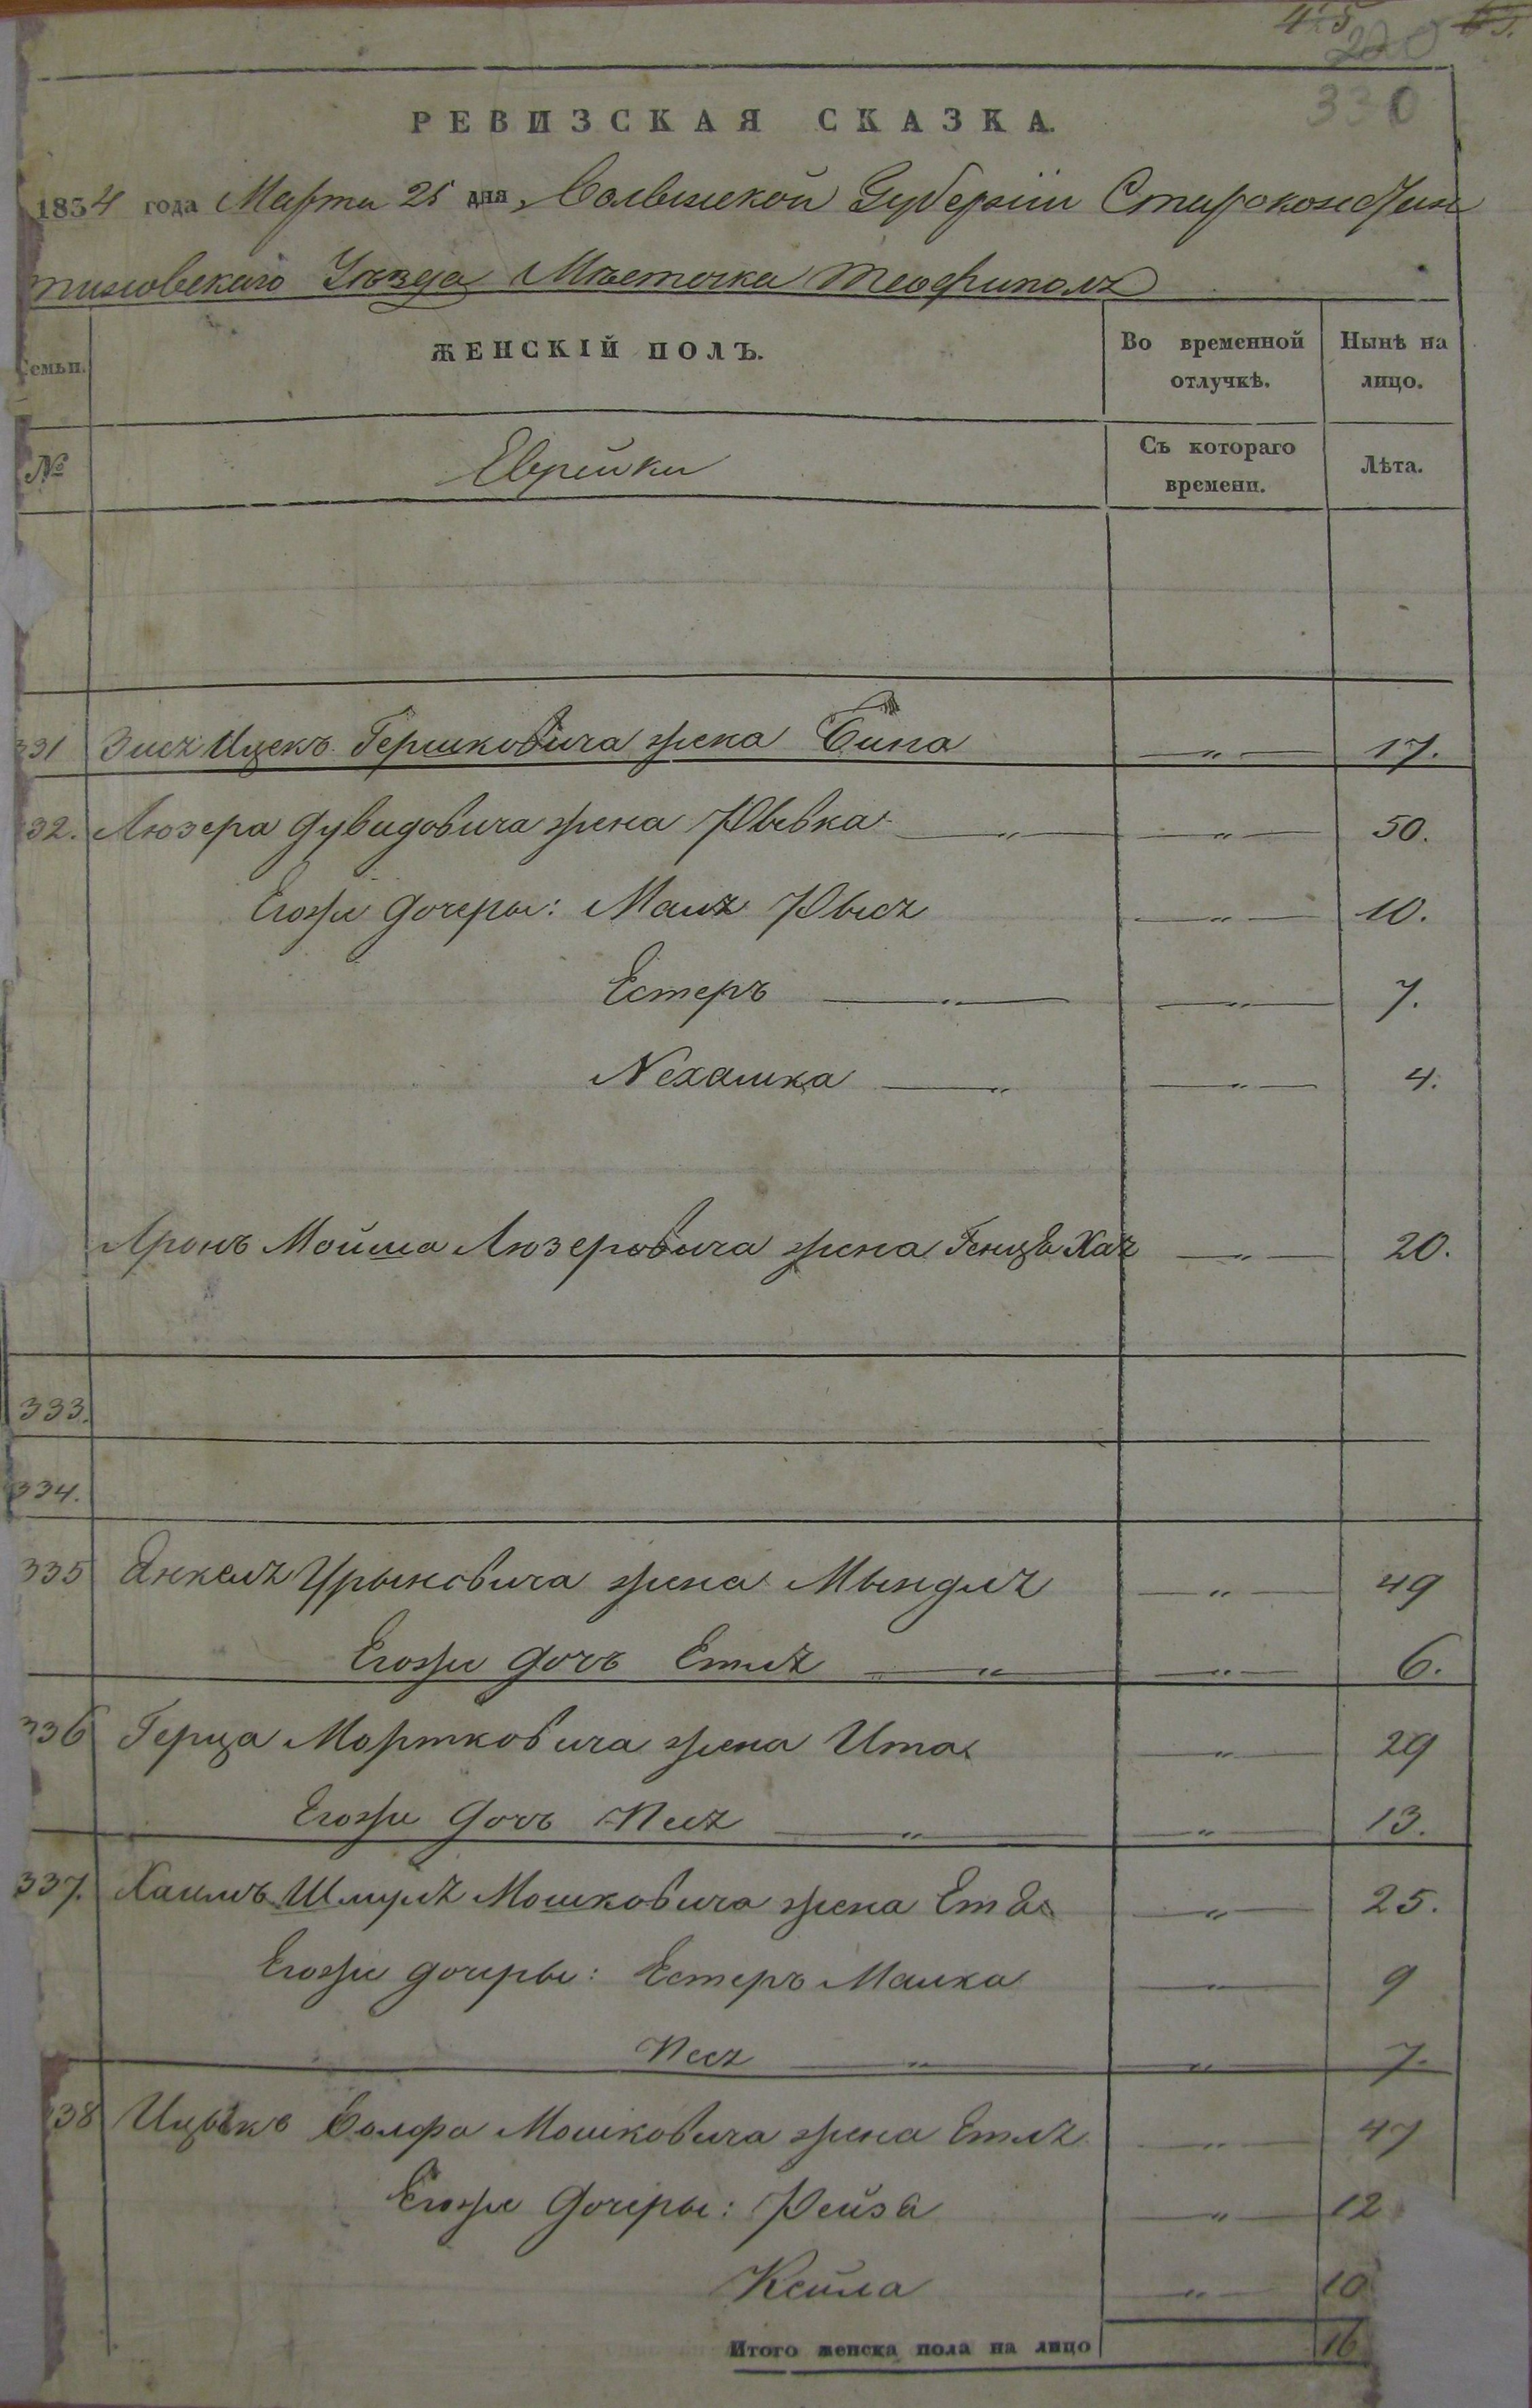 425
220
330
РЕВИЗСКАЯ СКАЗКА.
1854 года Марта 25 дня Волынской Губернiи Старокон
тиновскаго Уѣзда Мѣстечка Теофиполя
Семьи. ЖЕНСКІЙ ПОЛЪ. Во временной отлучкѣ. Нынѣ на лицо.
№ Еврейки Съ котораго времени. Лѣта.
331 Зися Ицекъ Гершковича жена Сипа — „ — 17.
32. Люзера Дувидовича жена Рывка — „ — — „ — 50.
Егоже дочеры: Мая Рыся — „ — 10.
Естеръ — „ — — „ — 7.
Нехамка — „ — „ — 4.
Аронъ Мойша Люзеровича жена Генця Хая — „ — 20.
333.
334.
335 Янкеля Урыновича жена Мындля — „ — 49
Егоже дочь Етля — „ — — „ — 6.
336 Герца Мортковича жена Ита — „ — 29
Егоже дочь Песя — „ — — „ — 13.
337. Хаимъ Шмуля Мошковича жена Етя — „ — 25.
Егоже дочеры: Естеръ Малка — „ — 9
Песя — „ — — „ — 7.
38 Ицыкъ Волфа Мошковича жена Етля — „ — 47
Егоже дочеры: Рейза — „ — 12
Кейла — „ — 10
Итого женска пола на лицо 16